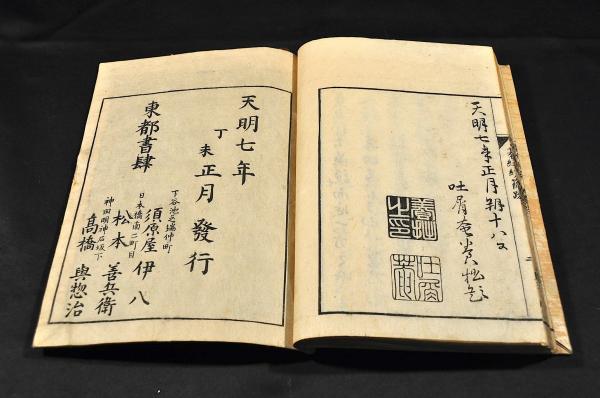 天明七年正月朔十八日
吐屑庵養拙題
養拙
之印
吐屑
菴
天明七年
丁未正月發行
東都書肆
下谷池之端仲町
須原屋伊八
日本橋南二町目
松本善兵衛
神田明神石坂下
高橋與惣治